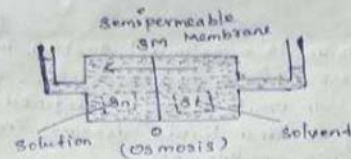 semipermeable
SM Membrane
[Sn] [St]
solution solvent
O
(Osmosis)